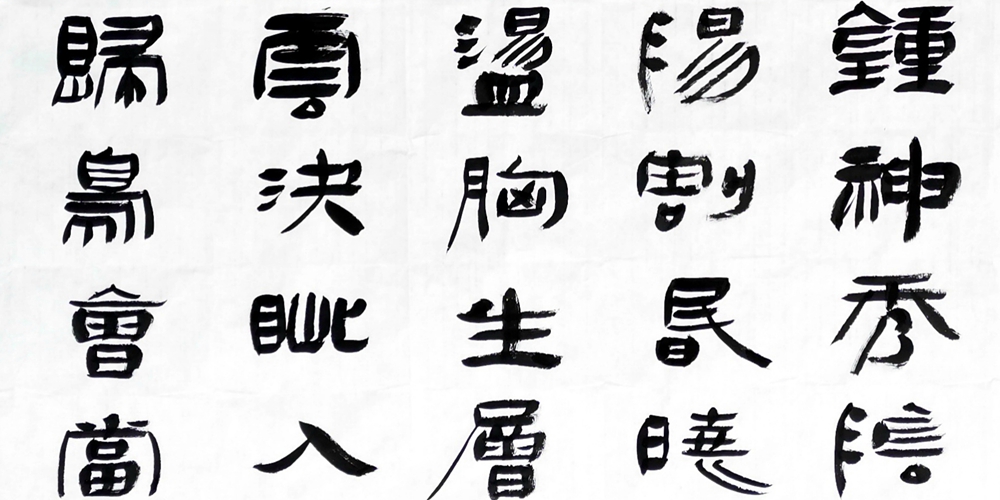 鍾神秀陰
陽割昬曉
盪胸生層
雲決眦入
歸鳥會當